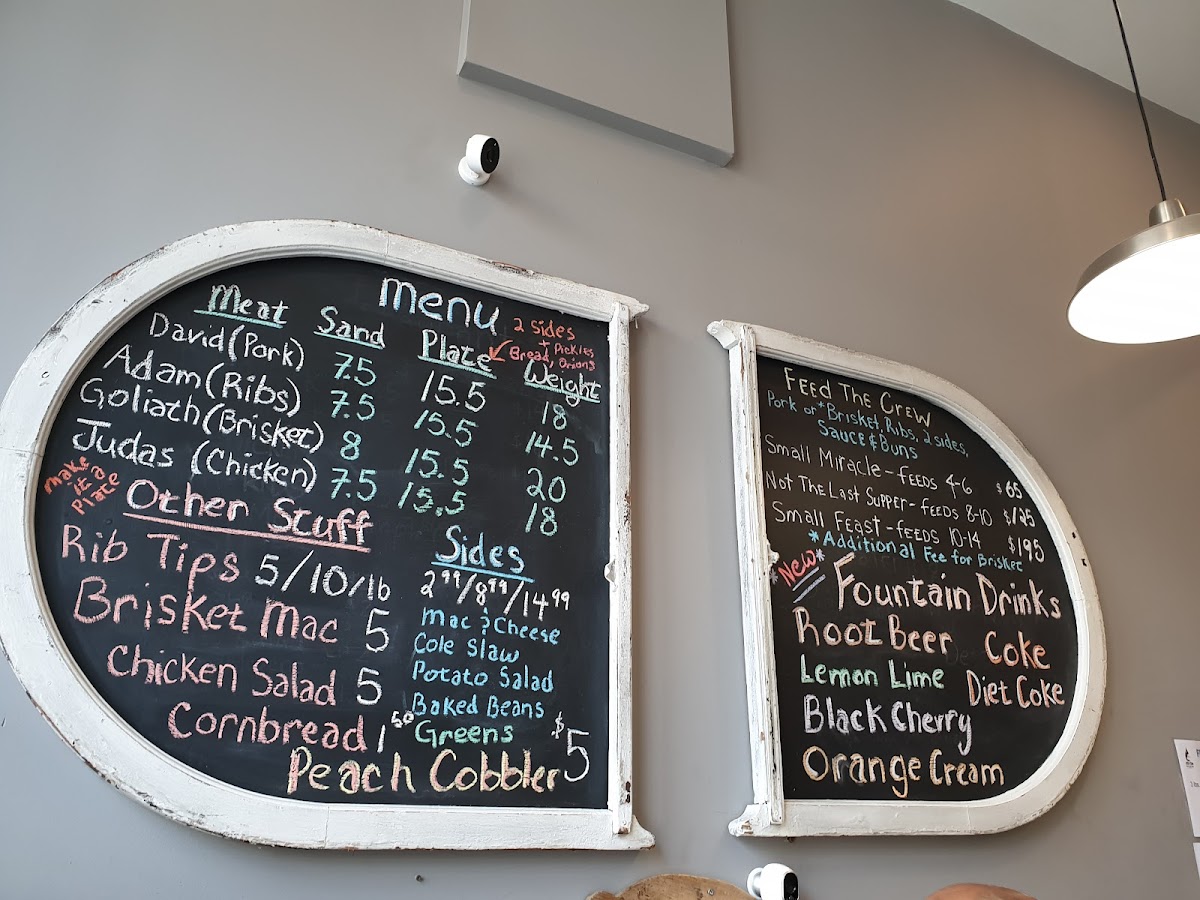 menu
Meat Sand Plate Weight
2 sides
+ Pickles
Bread, Onions
David (Pork) 7.5 15.5 18
Adam (Ribs) 7.5 15.5 14.5
Goliath (Brisket) 8 15.5 20
Judas (Chicken) 7.5 15.5 18
make
it a
Plate
Other Stuff
Rib Tips 5/10/lb
Brisket Mac 5
Chicken Salad 5
Cornbread 1 50
Peach Cobbler $5
Sides
2 99/8 99/14 99
Mac & Cheese
Cole Slaw
Potato Salad
Baked Beans
Greens
Feed The Crew
Pork or *Brisket, Ribs, 2 sides,
Sauce & Buns
Small Miracle - Feeds 4-6 $65
Not The Last Supper - Feeds 8-10 $125
Small Feast - Feeds 10-14 $195
*Additional Fee for Brisket
*New*
Fountain Drinks
Root Beer Coke
Lemon Lime Diet Coke
Black Cherry
Orange Cream